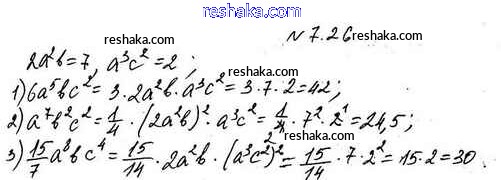 reshaka.com
№ 7.26
reshaka.com
2a²b=7, a³c²=2; reshaka.com
1) 6a⁵bc² = 3·2a²b·a³c² = 3·7·2=42;
2) a⁷b²c² = 1/4·(2a²b)²·a³c² = 1/4·7²·2¹ = 24,5;
3) 15/7 a⁸bc⁴ = 15/14·2a²b·(a³c²)² = 15/14·7·2² = 15·2 = 30.
reshaka.com reshaka.com